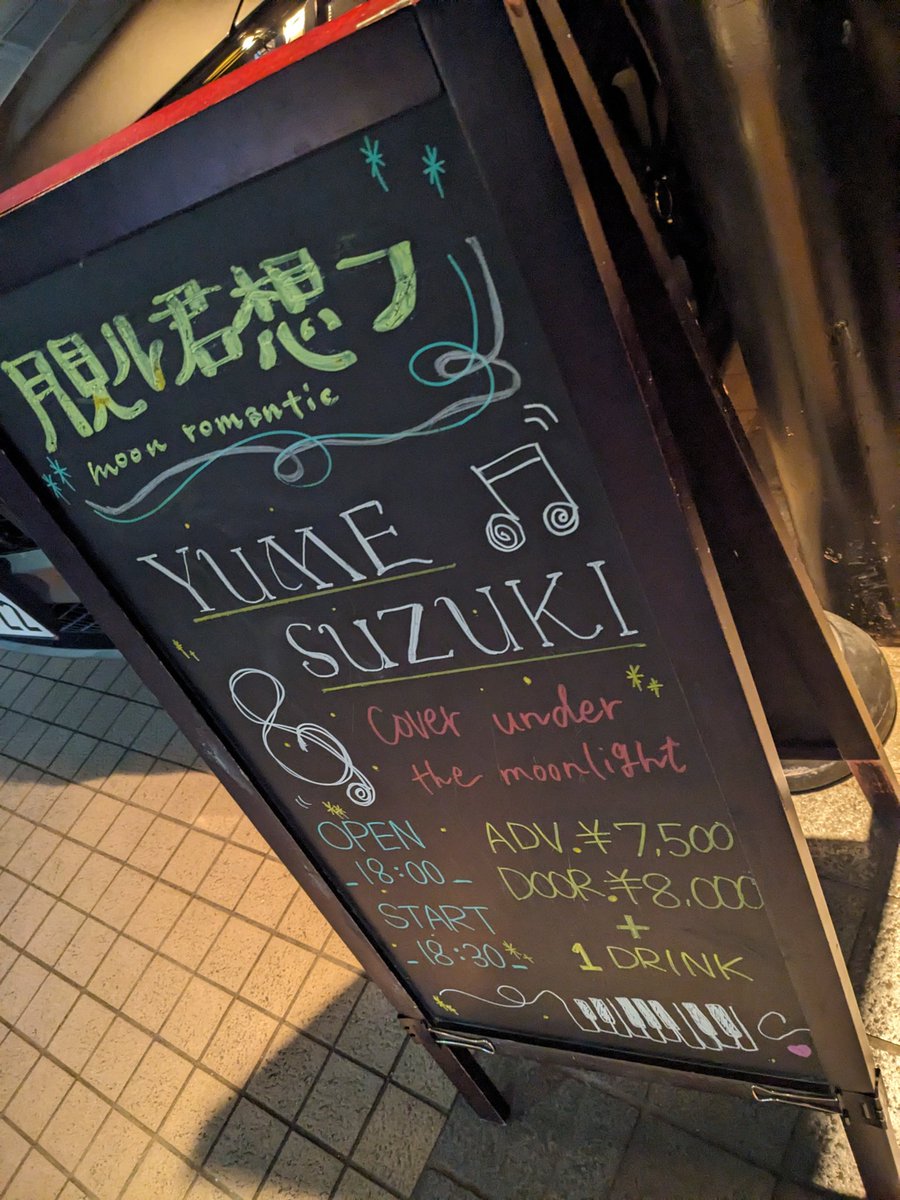 月見ル君想フ
moon romantic
YUME
SUZUKI
cover under
the moonlight
OPEN
-18:00-
START
-18:30-
ADV.¥7,500
DOOR.¥8,000
+
1 DRINK